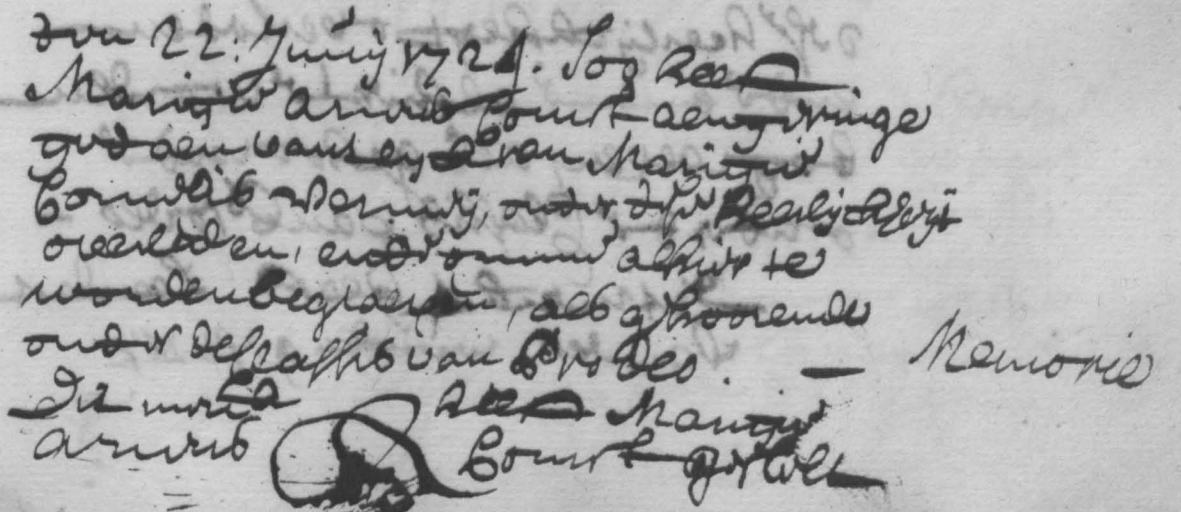 Den 22: Junij 1724. Soo heeft
Marijtie Arents Comst aengevinge
gedaen van Marijtie
Cornelis onder dese Heerlijckheijt
overleden, ende omme alhier te
worden begraeven, als gehoorende
onder de classis van Pro Deo. — Memorie
Dit merck heeft Marijtie
Arents Comst gestelt